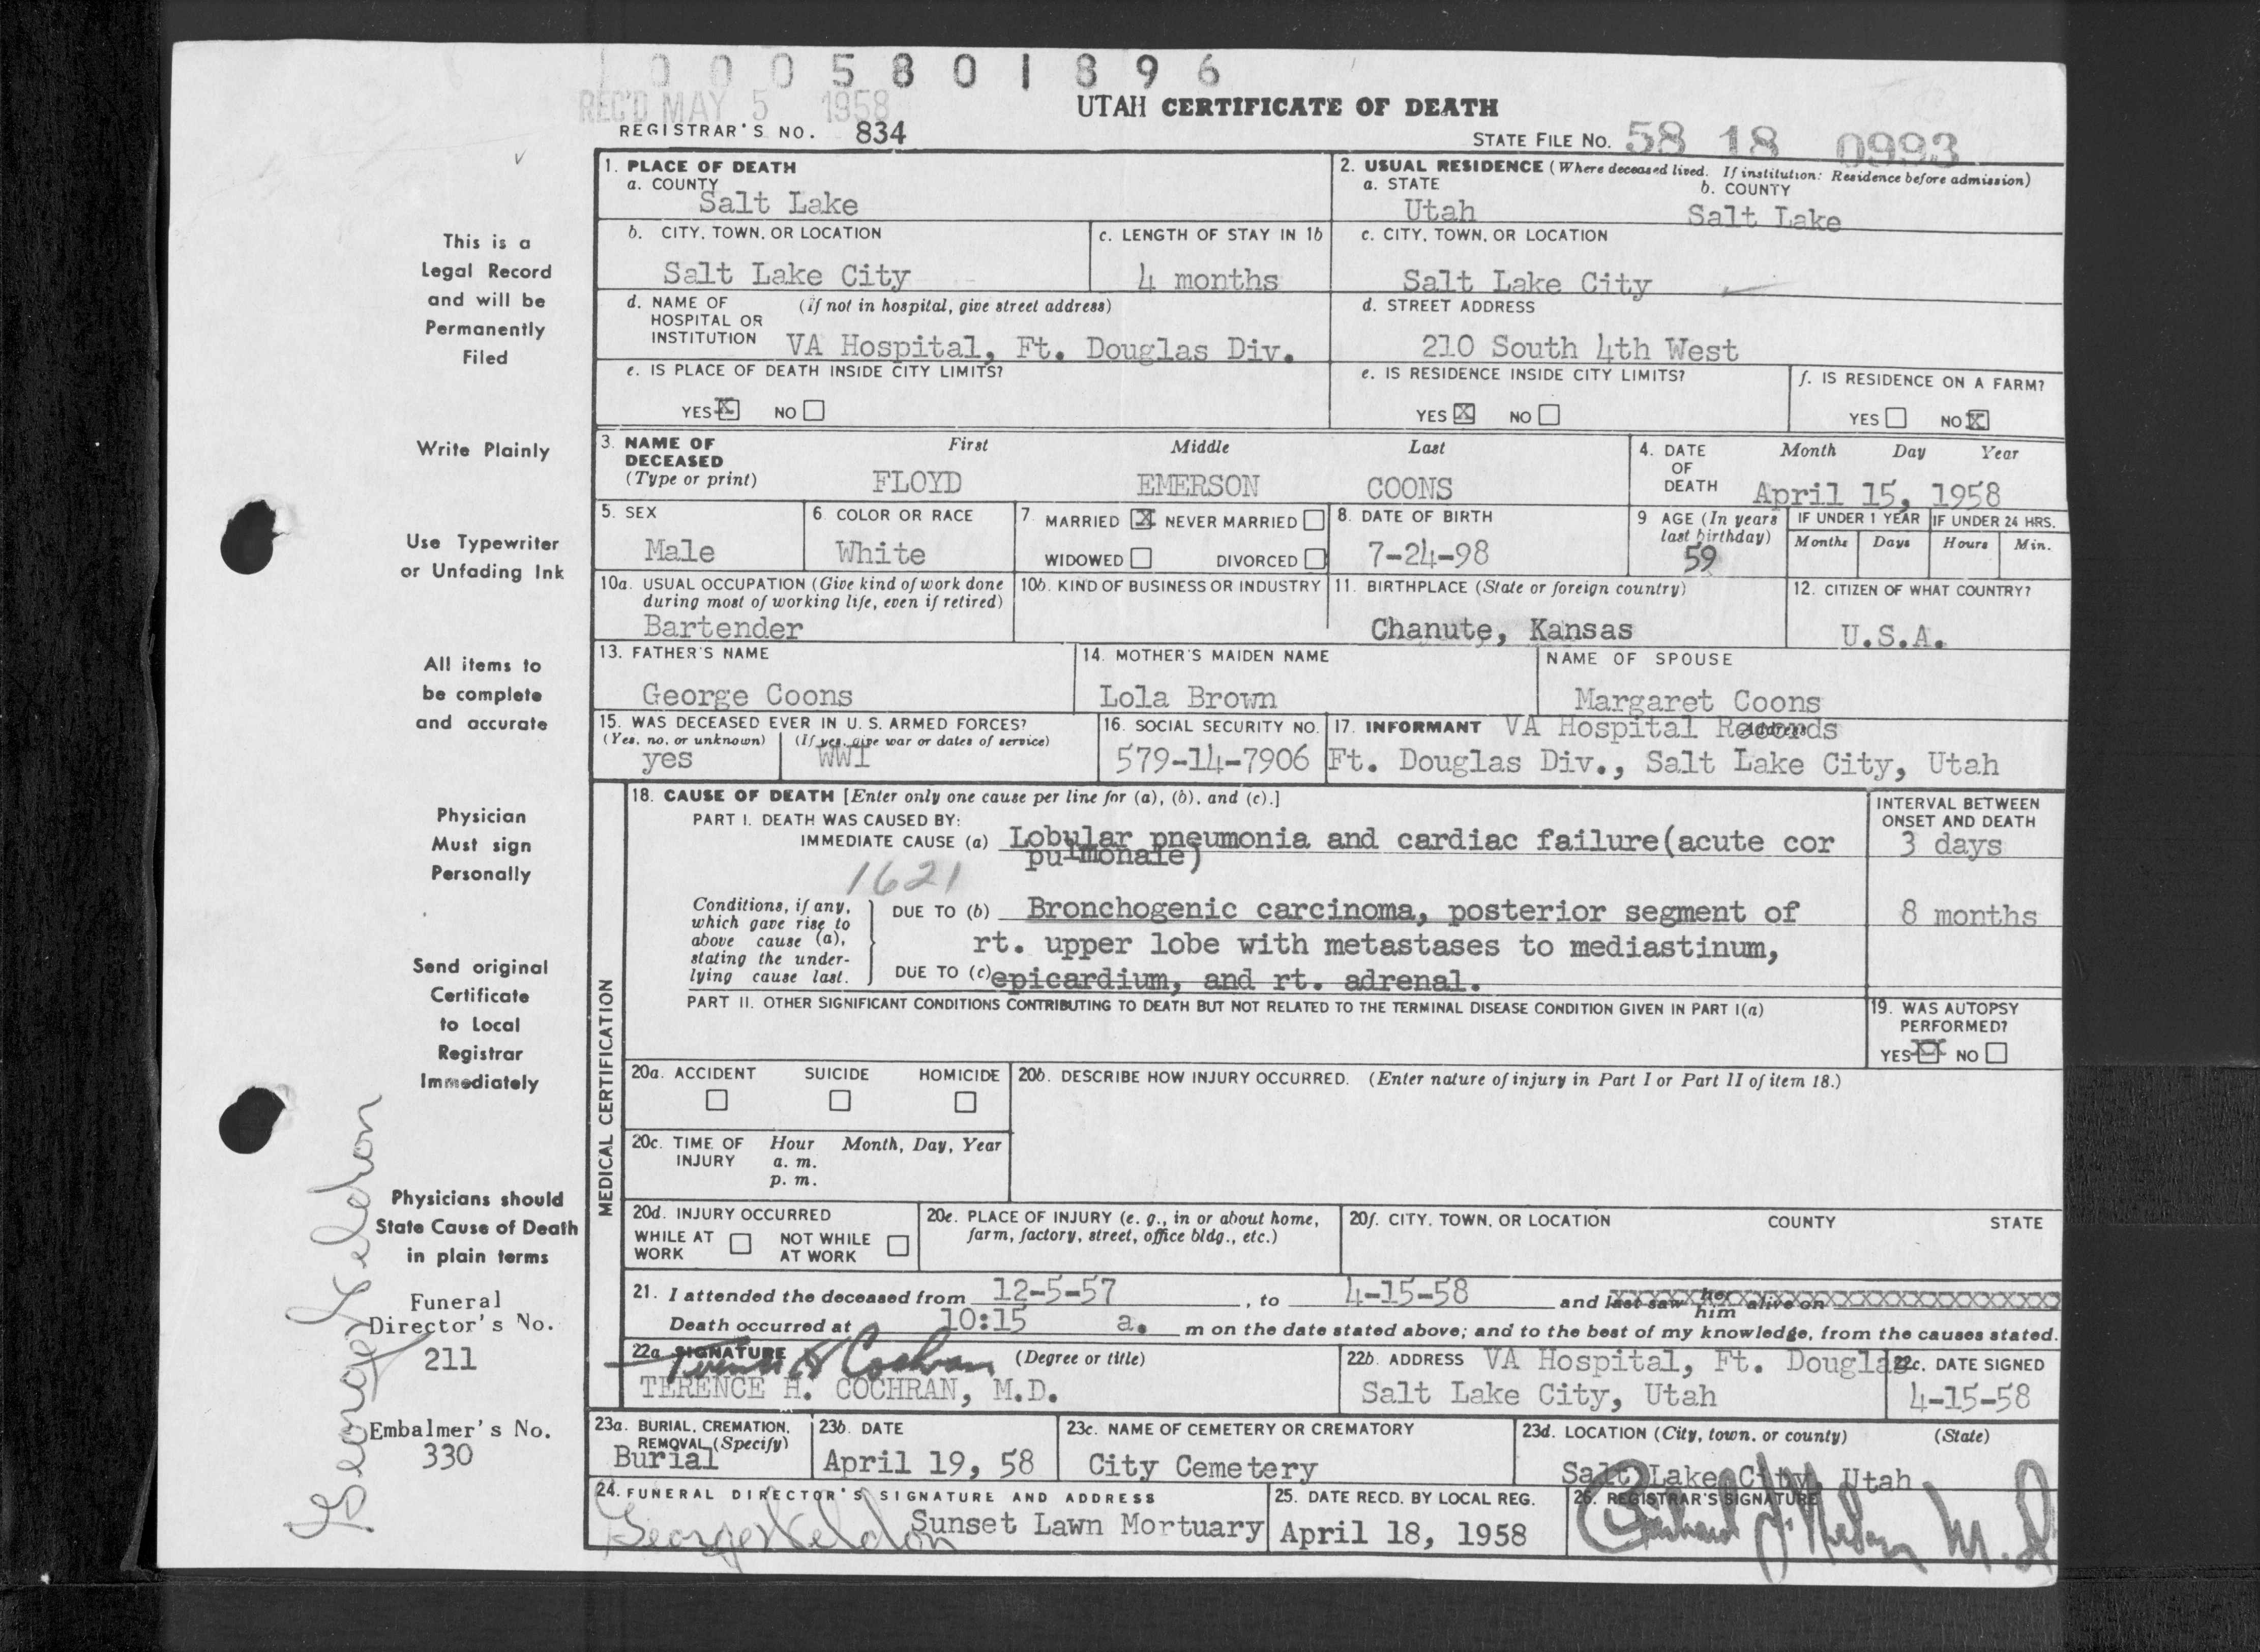 1 0 0 0 5 8 0 1 8 9 6
REC'D MAY 5 1958
UTAH CERTIFICATE OF DEATH
REGISTRAR'S NO. 834
STATE FILE NO. 58 18 0993
This is a
Legal Record
and will be
Permanently
Filed
Write Plainly
Use Typewriter
or Unfading Ink
All items to
be complete
and accurate
Physician
Must sign
Personally
Send original
Certificate
to Local
Registrar
Immediately
Physicians should
State Cause of Death
in plain terms
Funeral
Director's No.
211
Embalmer's No.
330
George Y eldron
1. PLACE OF DEATH
a. COUNTY
Salt Lake
2. USUAL RESIDENCE (Where deceased lived. If institution: Residence before admission)
a. STATE b. COUNTY
Utah Salt Lake
b. CITY, TOWN, OR LOCATION
Salt Lake City
c. LENGTH OF STAY IN 1b
4 months
c. CITY, TOWN, OR LOCATION
Salt Lake City
d. NAME OF (if not in hospital, give street address)
HOSPITAL OR
INSTITUTION VA Hospital, Ft. Douglas Div.
d. STREET ADDRESS
210 South 4th West
e. IS PLACE OF DEATH INSIDE CITY LIMITS?
YES X NO
e. IS RESIDENCE INSIDE CITY LIMITS?
YES X NO
f. IS RESIDENCE ON A FARM?
YES NO X
3. NAME OF First Middle Last
DECEASED
(Type or print) FLOYD EMERSON COONS
4. DATE Month Day Year
OF
DEATH April 15, 1958
5. SEX
Male
6 COLOR OR RACE
White
7 MARRIED X NEVER MARRIED
WIDOWED DIVORCED
8. DATE OF BIRTH
7-24-98
9 AGE (In years
last birthday)
59
IF UNDER 1 YEAR
Months Days
IF UNDER 24 HRS.
Hours Min.
10a. USUAL OCCUPATION (Give kind of work done
during most of working life, even if retired)
Bartender
10b. KIND OF BUSINESS OR INDUSTRY
11. BIRTHPLACE (State or foreign country)
Chanute, Kansas
12. CITIZEN OF WHAT COUNTRY?
U.S.A.
13. FATHER'S NAME
George Coons
14. MOTHER'S MAIDEN NAME
Lola Brown
NAME OF SPOUSE
Margaret Coons
15. WAS DECEASED EVER IN U. S. ARMED FORCES?
(Yes, no, or unknown) (If yes, give war or dates of service)
yes WWI
16. SOCIAL SECURITY NO.
579-14-7906
17. INFORMANT VA Hospital Records
Address
Ft. Douglas Div., Salt Lake City, Utah
MEDICAL CERTIFICATION
18. CAUSE OF DEATH [Enter only one cause per line for (a), (b), and (c).]
PART I. DEATH WAS CAUSED BY:
IMMEDIATE CAUSE (a) Lobular pneumonia and cardiac failure(acute cor
pulmonale)
INTERVAL BETWEEN
ONSET AND DEATH
3 days
1621
Conditions, if any,
which gave rise to
above cause (a),
stating the under-
lying cause last.
DUE TO (b) Bronchogenic carcinoma, posterior segment of
8 months
rt. upper lobe with metastases to mediastinum,
DUE TO (c) epicardium, and rt. adrenal.
PART II. OTHER SIGNIFICANT CONDITIONS CONTRIBUTING TO DEATH BUT NOT RELATED TO THE TERMINAL DISEASE CONDITION GIVEN IN PART I(a)
19. WAS AUTOPSY
PERFORMED?
YES X NO
20a. ACCIDENT SUICIDE HOMICIDE
20b. DESCRIBE HOW INJURY OCCURRED. (Enter nature of injury in Part I or Part II of item 18.)
20c. TIME OF Hour Month, Day, Year
INJURY a. m.
p. m.
20d. INJURY OCCURRED
WHILE AT NOT WHILE
WORK AT WORK
20e. PLACE OF INJURY (e. g., in or about home,
farm, factory, street, office bldg., etc.)
20f. CITY, TOWN, OR LOCATION COUNTY STATE
21. I attended the deceased from 12-5-57, to 4-15-58 and last saw her him alive on
Death occurred at 10:15 a. m on the date stated above; and to the best of my knowledge, from the causes stated.
22a SIGNATURE (Degree or title)
Terence H Cochran
TERENCE H. COCHRAN, M.D.
22b. ADDRESS VA Hospital, Ft. Douglas
Salt Lake City, Utah
22c. DATE SIGNED
4-15-58
23a. BURIAL, CREMATION,
REMOVAL (Specify)
Burial
23b. DATE
April 19, 58
23c. NAME OF CEMETERY OR CREMATORY
City Cemetery
23d. LOCATION (City, town, or county) (State)
Salt Lake City, Utah
24. FUNERAL DIRECTOR'S SIGNATURE AND ADDRESS
Sunset Lawn Mortuary
25. DATE RECD. BY LOCAL REG.
April 18, 1958
26. REGISTRAR'S SIGNATURE
M.D.